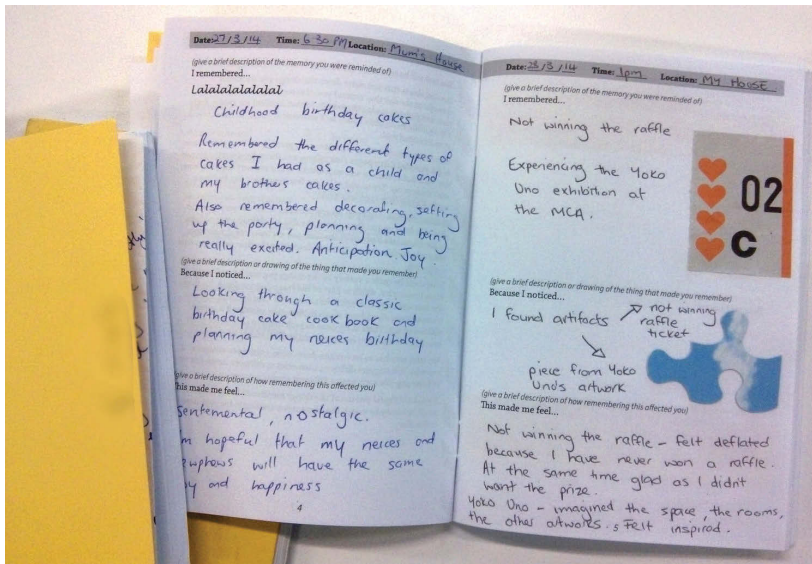 Date: 27/3/14 Time: 6 30 PM Location: Mum's House
(give a brief description of the memory you were reminded of)
I remembered...
Lalalalalalalal
Childhood birthday cakes
Remembered the different types of
cakes I had as a child and
my brothers cakes.
Also remembered decorating, setting
up the party, planning and being
really excited. Anticipation Joy.
(give a brief description or drawing of the thing that made you remember)
Because I noticed...
Looking through a classic
birthday cake cook book and
planning my neices birthday
give a brief description of how remembering this affected you)
his made me feel...
sentemental, nostalgic.
m hopeful that my neices and
ewphews will have the same
oy and happiness
4
Date: 28/3/14 Time: 1pm Location: MY HOUSE
(give a brief description of the memory you were reminded of)
I remembered...
Not winning the raffle
Experiencing the Yoko
Uno exhibition at
the MCA.
02
C
(give a brief description or drawing of the thing that made you remember)
Because I noticed...
I found artifacts
not winning
raffle
ticket
piece from Yoko
Uno's artwork
(give a brief description of how remembering this affected you)
This made me feel...
Not winning the raffle - felt deflated
because I have never won a raffle.
At the same time glad as I didn't
want the prize.
Yoko Uno - imagined the space, the rooms,
the other artworks. Felt inspired.
5